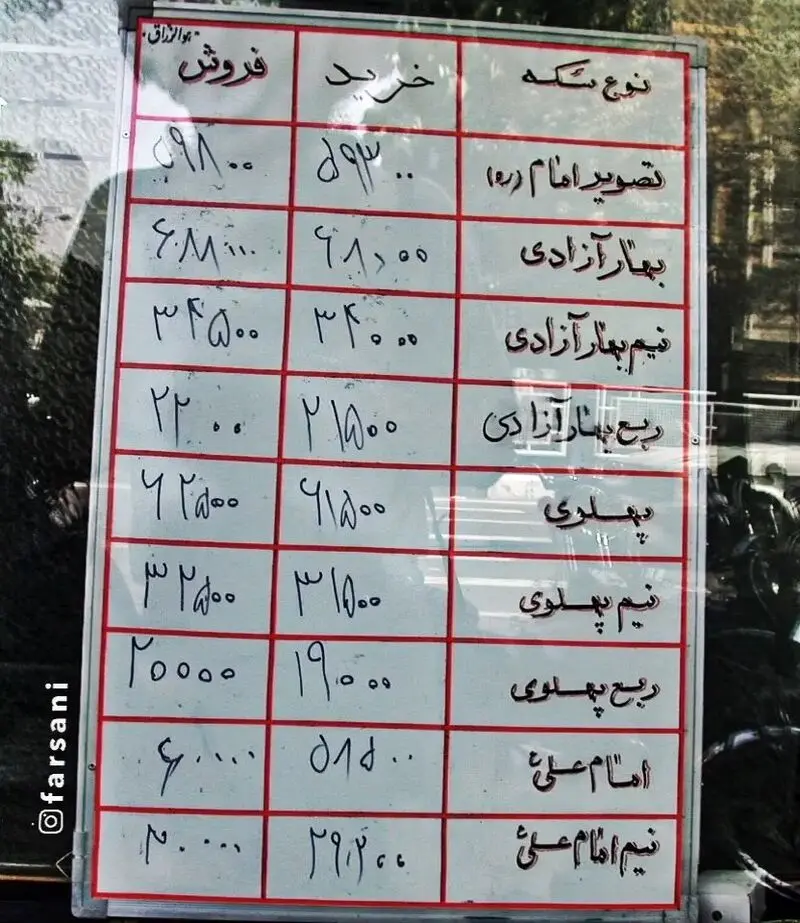 هوالرزاق
نوع سکه خرید فروش
تصویر امام (ره) ۵۹۳۰۰ ۵۹۸۰۰
بهار آزادی ۶۸۰۰۰ ۶۸۸۰۰۰
نیم بهار آزادی ۳۴۰۰۰ ۳۴۵۰۰
ربع بهار آزادی ۲۱۵۰۰ ۲۲۰۰۰
پهلوی ۶۱۵۰۰ ۶۲۵۰۰
نیم پهلوی ۳۱۵۰۰ ۳۲۵۰۰
ربع پهلوی ۱۹۰۰۰ ۲۰۰۰۰
امام علی ۵۸۵۰۰ ۶۰۰۰۰
نیم امام علی ۲۹۲۰۰
farsani